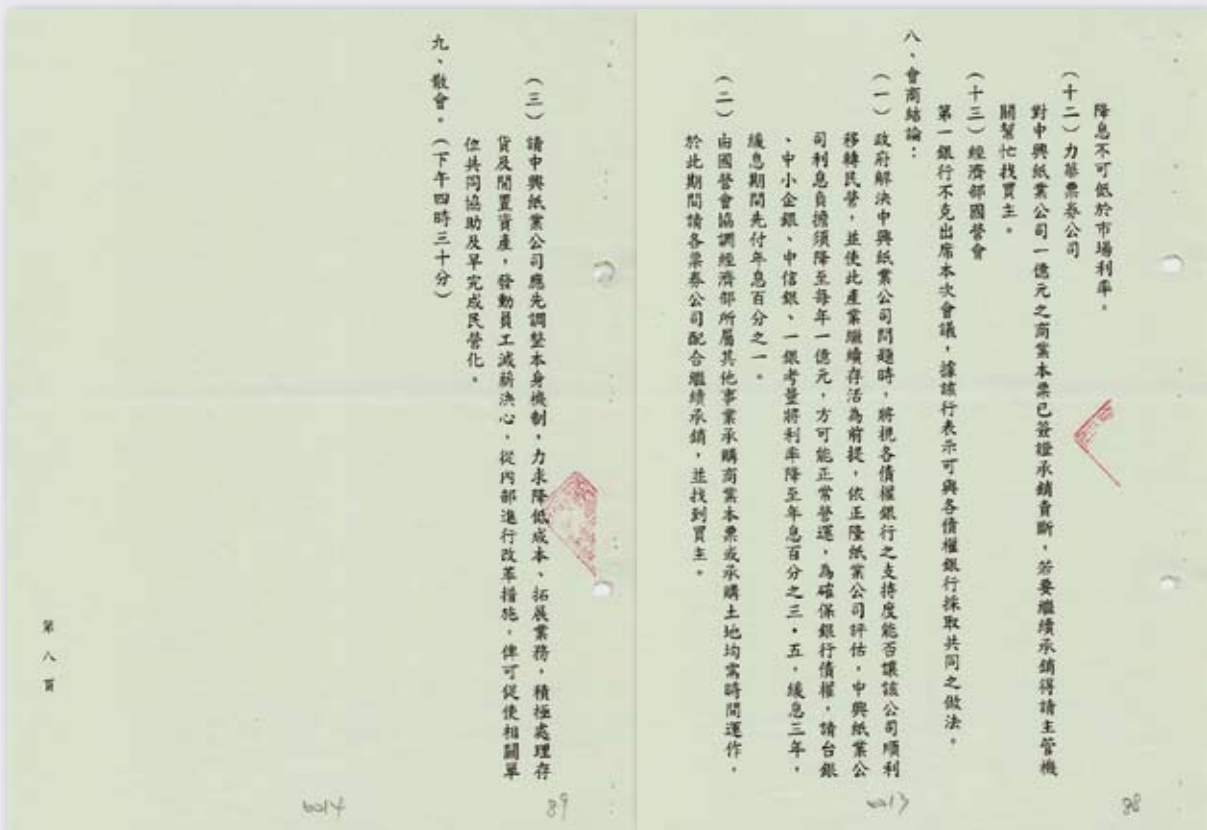 降息不可低於市場利率。
(十二)力華票券公司
對中興紙業公司一億元之商業本票已簽證承銷賣斷,若要繼續承銷得請主管機
關幫忙找買主。
(十三)經濟部國營會
第一銀行不克出席本次會議,據該行表示可與各債權銀行採取共同之做法。
八、會商結論:
(一)政府解決中興紙業公司問題時,將視各債權銀行之支持度能否讓該公司順利
移轉民營,並使此產業繼續存活為前提,依正隆紙業公司評估,中興紙業公
司利息負擔須降至每年一億元,方可能正常營運,為確保銀行債權,請台銀
、中小企銀、中信銀、一銀考量將利率降至年息百分之三.五,緩息三年,
緩息期間先付年息百分之一。
(二)由國營會協調經濟部所屬其他事業承購商業本票或承購土地均需時間運作,
於此期間請各票券公司配合繼續承銷,並找到買主。
88
6013
(三)請中興紙業公司應先調整本身機制,力求降低成本、拓展業務,積極處理存
貨及閒置資產,發動員工減薪決心,從內部進行改革措施,俾可促使相關單
位共同協助及早完成民營化。
九、散會。(下午四時三十分)
第八頁
89
6014